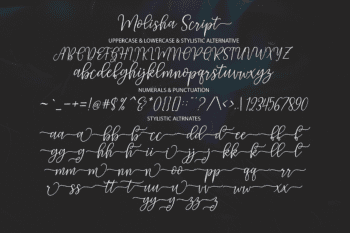 Molisha Script
UPPERCASE & LOWERCASE & STYLISTIC ALTERNATIVE
ABCDEFGHIJKLMNOPQRSTUVWXYZ
abcdefghijklmnopqrstuvwxyz
NUMERALS & PUNCTUATION
~`-_-+=!@#$%^&*(){}[]:;"?/\<>.|1234567890
STYLISTIC ALTRNATES
aa a bb b cc dd d ee ff f
gg g hh h ii j jj kk k ll l
mm m nn n oo pp qq rr
r ss tt t uu u vv ww xx
yy y zz z